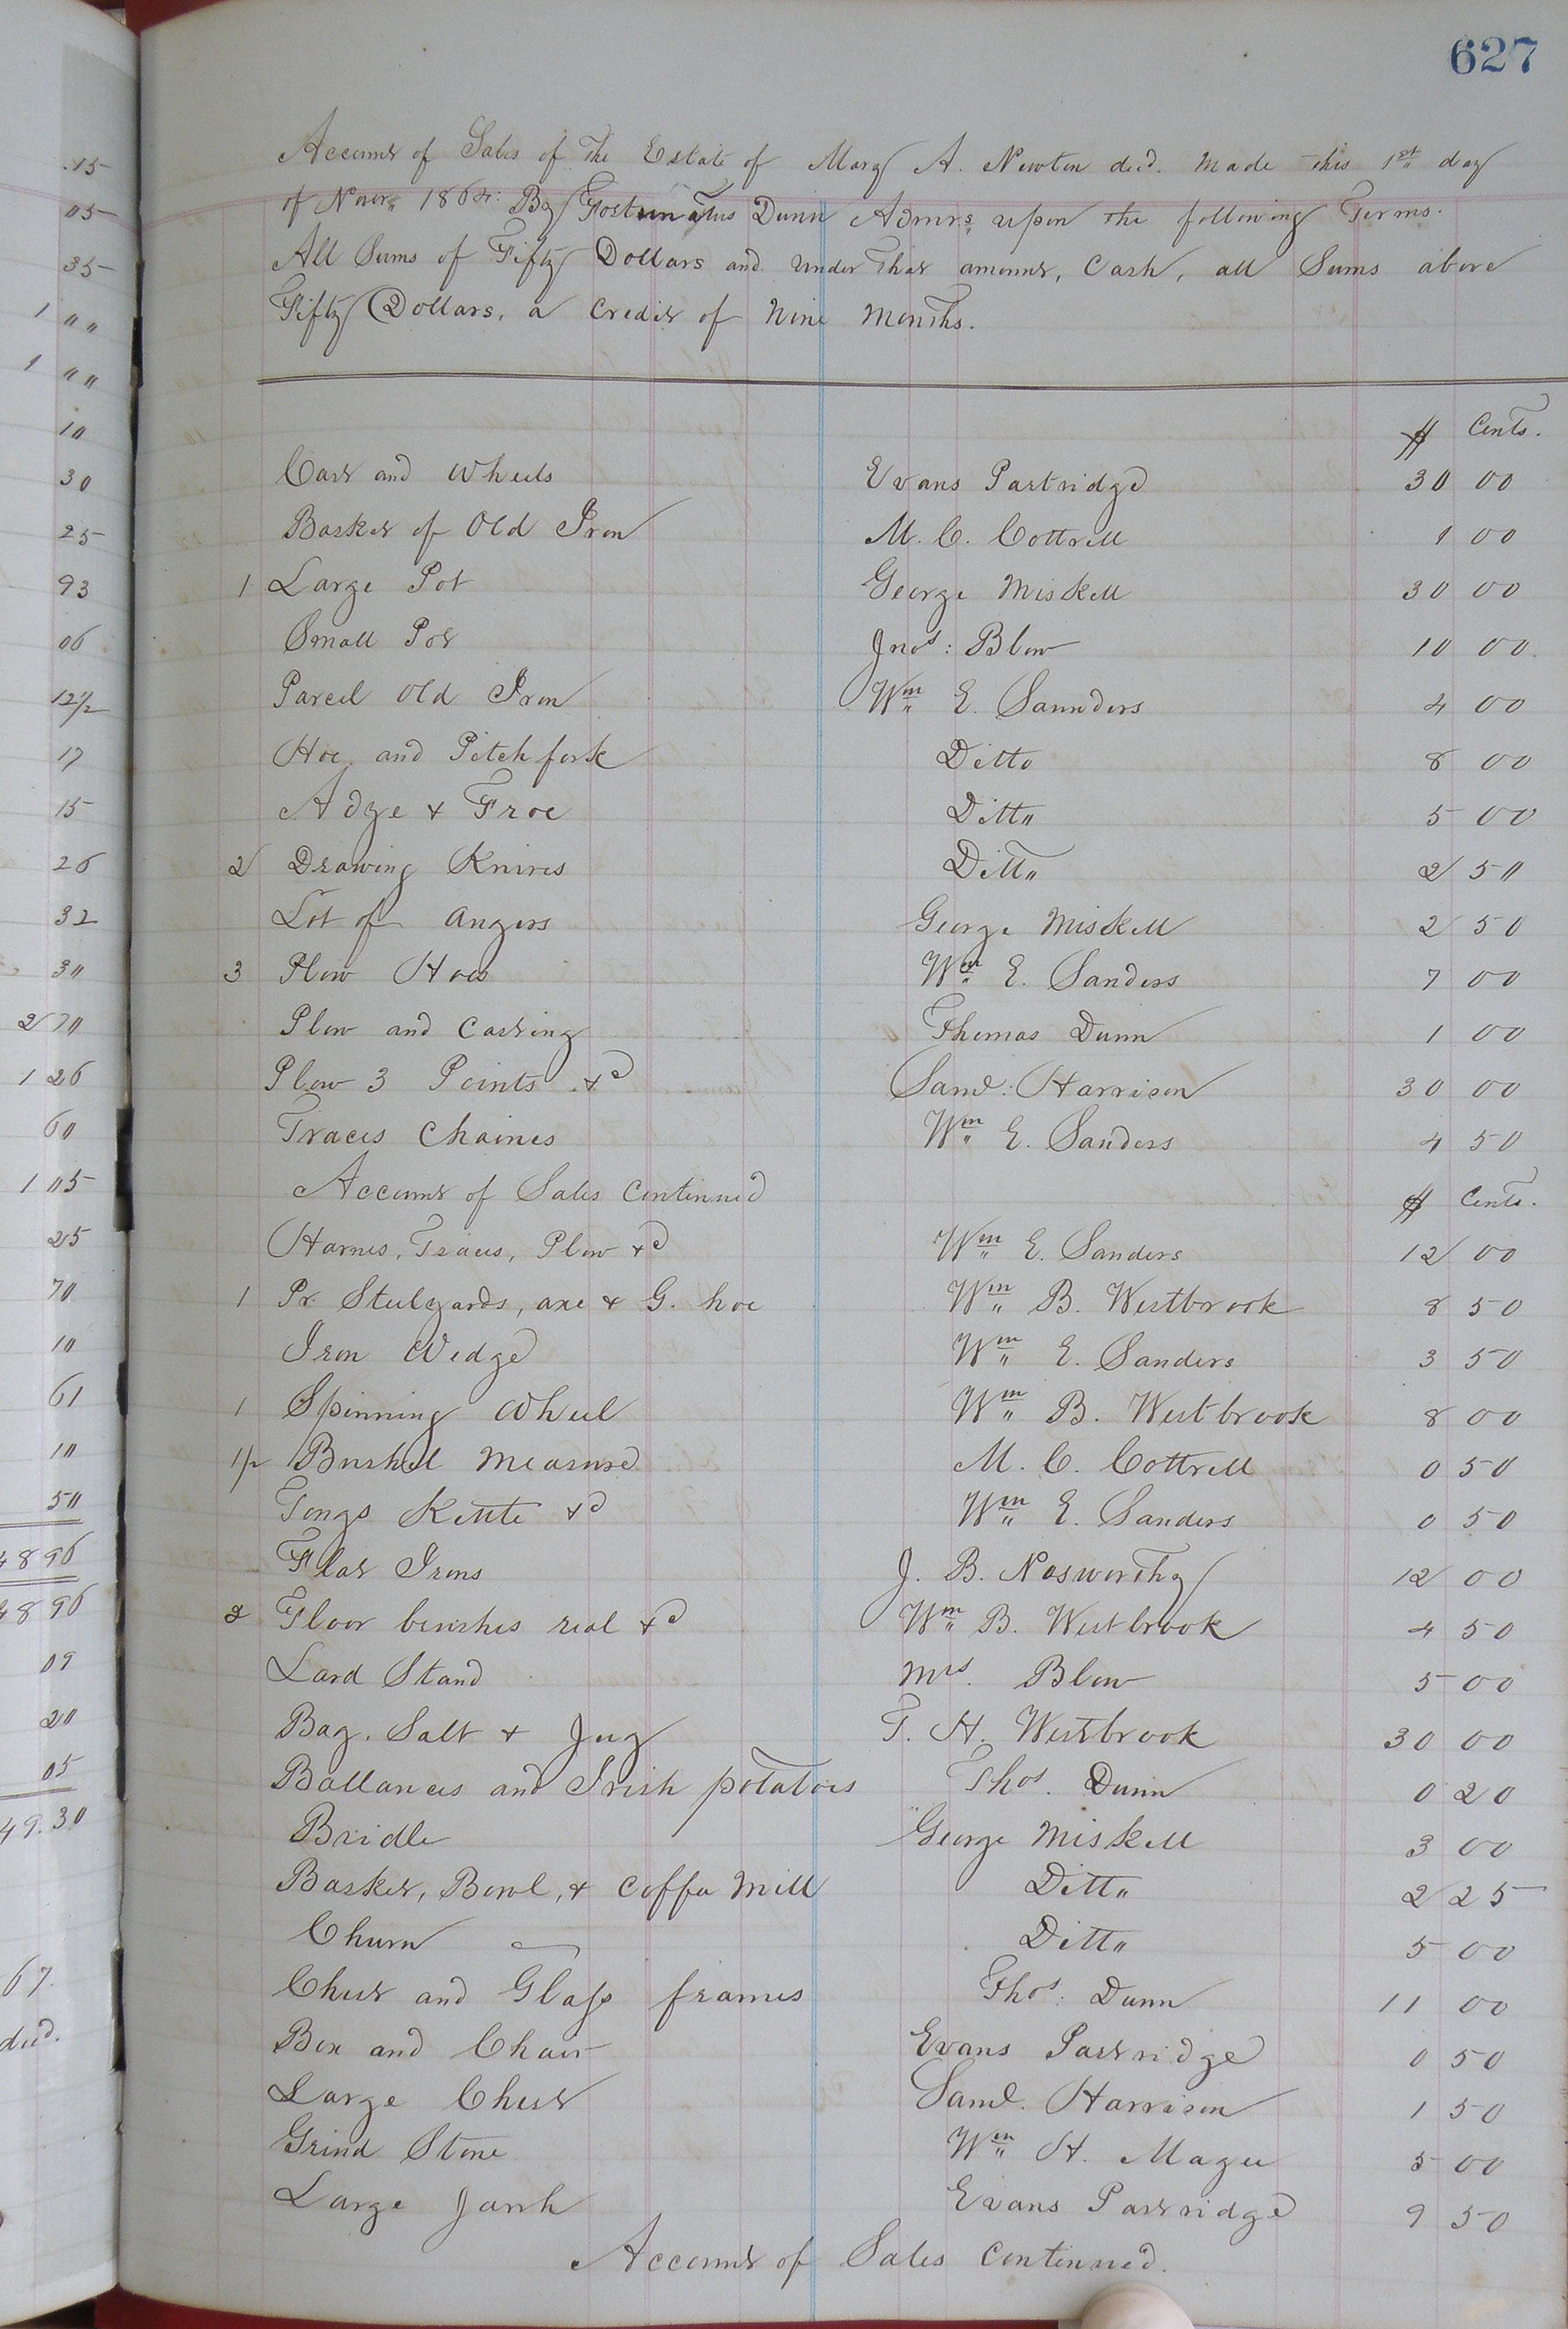 627
Account of Sales of The Estate of Mary A. Newton decd. made this 1st day
of Novr. 1864: By Fostunatus Dunn Admrs upon the following Terms.
All Sums of Fifty Dollars and under That amount, Cash, all Sums above
Fifty Dollars, a Credit of Nine Months.
$ Cents.
Cart and Wheels Evans Partridge 30 00
Basket of Old Iron M. C. Cottrell 1 00
1 Large Pot George Miskell 30 00
Small Pot Jnos: Blow 10 00
Parcel Old Iron Wm E. Saunders 4 00
Hoe, and Pitchfork Ditto 8 00
Adze & Froe Ditto 5 00
2 Drawing Knives Ditto 2 50
Lot of Augers George Miskell 2 50
3 Plow Hoes Wm E. Sanders 7 00
Plow and Casting Thomas Dunn 1 00
Plow 3 Points &c Saml: Harrison 30 00
Traces Chaines Wm E. Sanders 4 50
Account of Sales Continued $ Cents.
Hames, Traces, Plow &c Wm E. Sanders 12 00
1 Pr. Steelyards, axe & G. hoe Wm B. Westbrook 8 50
Iron Wedge Wm E. Sanders 3 50
1 Spinning Wheel Wm B. Westbrook 8 00
1/2 Bushel Measure M. C. Cottrell 0 50
Tongs Kettle &c Wm E. Sanders 0 50
Flat Irons J. B. Nosworthy 12 00
2 Floor brushes real &c Wm B. Westbrook 4 50
Lard Stand Mrs. Blow 5 00
Bag. Salt & Jug T. H. Westbrook 30 00
Ballances and Irish potatoes Thos. Dunn 0 20
Bridle George Miskell 3 00
Basket, Bowl, & Coffee Mill Ditto 2 25
Churn Ditto 5 00
Chest and Glass frames Thos: Dunn 11 00
Box and Chair Evans Partridge 0 50
Large Chest Saml. Harrison 1 50
Grind Stone Wm H. Magee 5 00
Large Jarrh Evans Partridge 9 50
Account of Sales Continued.
.15
05
35
1 " "
1 " "
10
30
25
93
06
12 1/2
17
15
26
32
30
2 70
1 26
60
1 05
25
70
10
61
10
50
48 96
48 96
09
20
05
49.30
67.
decd.